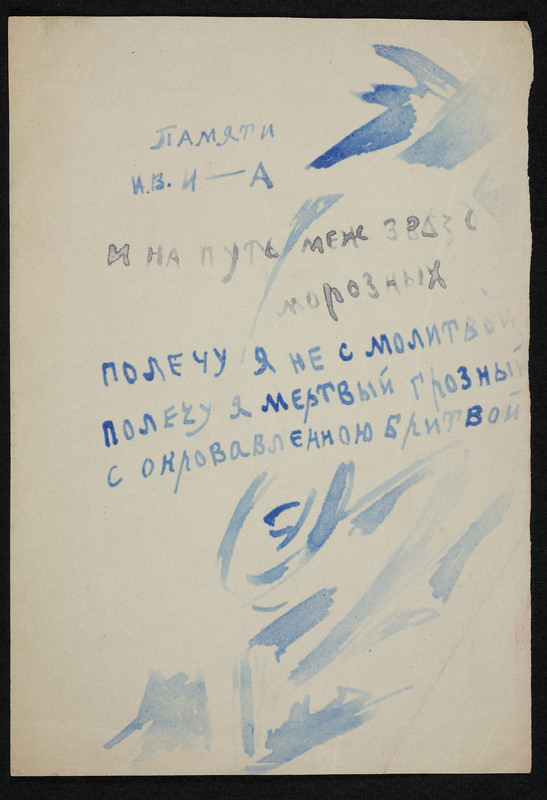 Памяти
И.В. И — А
И на путь меж звезд
морозных
полечу я не с молитвой
полечу я мертвый грозный
с окровавленною бритвой